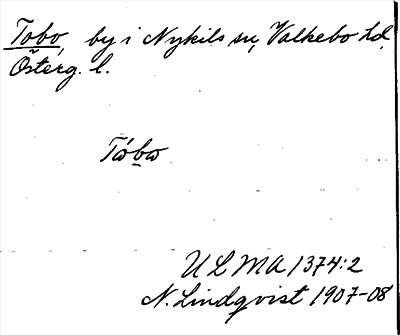 Tobo, by i Nykils sn, Valkebo hd,
Österg. l.
Tóbo
ULMA 1374:2
N. Lindqvist 1907-08